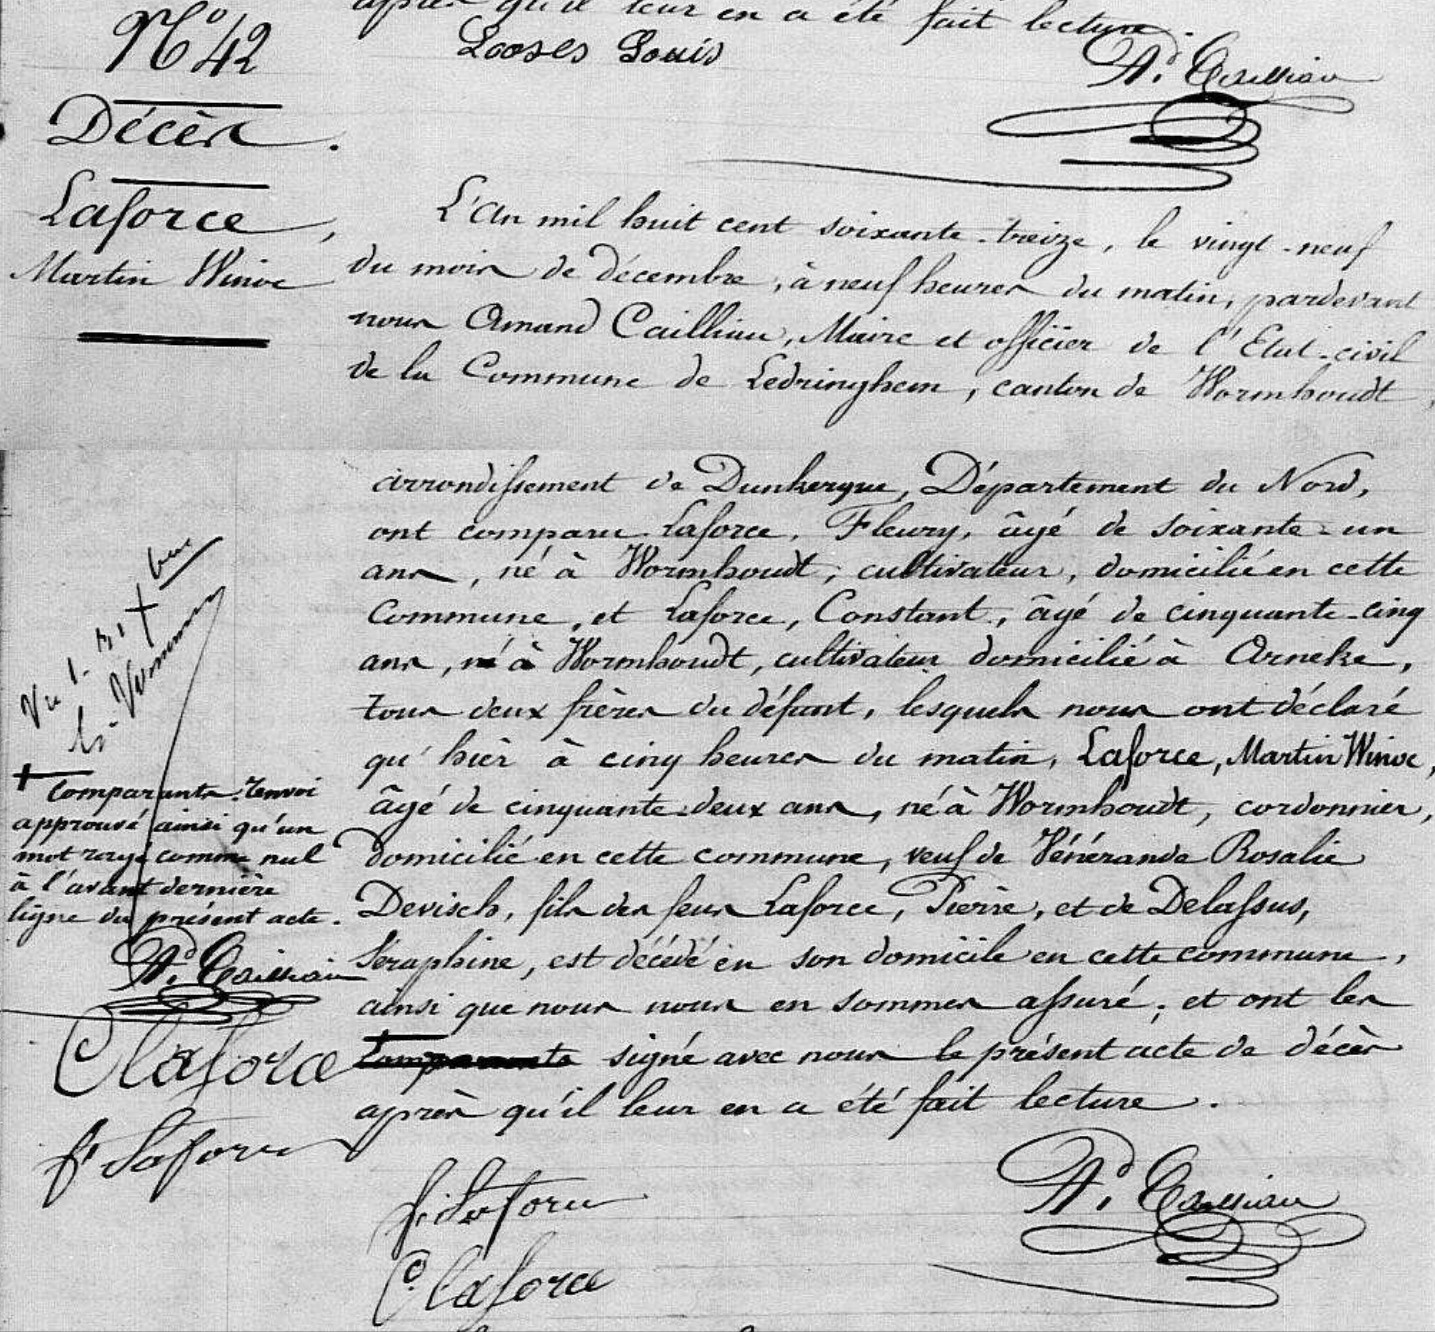 après qu'il leur en a été fait lecture.
Looses Louis
Ad. Cailliau
No 42
Décès.
Laforce,
Martin Winoc
L'An mil huit cent soixante-treize, le vingt-neuf
du mois de décembre, à neuf heures du matin, pardevant
nous Amand Cailliau, Maire et officier de l'Etat-civil
de la Commune de Ledringhem, canton de Wormhoudt,
arrondissement de Dunkerque, Département du Nord,
ont comparu Laforce, Fleury, âgé de soixante-un
ans, né à Wormhoudt, cultivateur, domicilié en cette
Commune, et Laforce, Constant, âgé de cinquante-cinq
ans, né à Wormhoudt, cultivateur domicilié à Arneke,
tous deux frères du défunt, lesquels nous ont déclaré
qu'hièr à cinq heures du matin, Laforce, Martin Winoc,
âgé de cinquante-deux ans, né à Wormhoudt, cordonnier,
domicilié en cette commune, veuf de Vénéranda Rosalie
Devisch, fils des feus Laforce, Pierre, et de Delassus,
Séraphine, est décédé en son domicile en cette commune,
ainsi que nous nous en sommes assuré; et ont les
+ comparants signé avec nous le présent acte de décès
après qu'il leur en a été fait lecture.
Vu
+ Comparants. Renvoi
approuvé ainsi qu'un
mot rayé comme nul
à l'avant dernière
ligne du présent acte.
Ad. Cailliau
C Laforce
f. Laforce
f. Laforce
C. Laforce
Ad. Cailliau